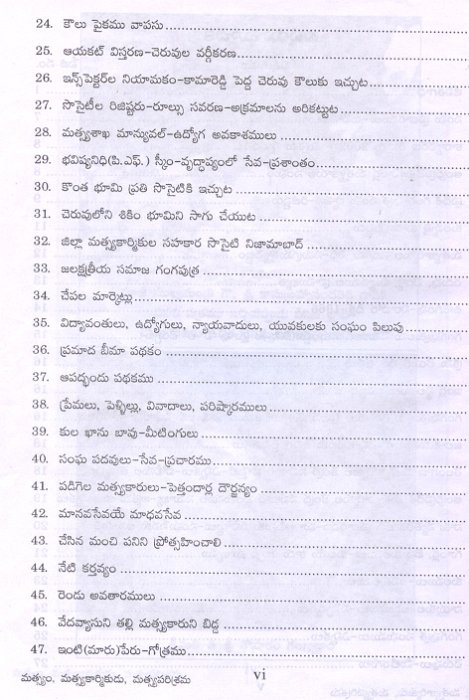 24. కౌలు పైకము వాపసు
25. ఆయకట్ విస్తరణ-చెరువుల వర్గీకరణ
26. ఇన్స్‌పెక్టర్‌ల నియామకం-కామారెడ్డి పెద్ద చెరువు కౌలుకు ఇచ్చుట
27. సొసైటీల రిజిష్టరు-రూల్సు సవరణ-అక్రమాలను అరికట్టుట
28. మత్స్యశాఖ మాన్యువల్-ఉద్యోగ అవకాశములు
29. భవిష్యనిధి(పి.ఎఫ్.) స్కీం-వృద్ధాప్యంలో సేవ-ప్రశాంతం
30. కొంత భూమి ప్రతి సొసైటికి ఇచ్చుట
31. చెరువులోని శికిం భూమిని సాగు చేయుట
32. జిల్లా మత్స్యకార్మికుల సహకార సొసైటి నిజామాబాద్
33. జలక్షత్రీయ సమాజ గంగపుత్ర
34. చేపల మార్కెట్లు
35. విద్యావంతులు, ఉద్యోగులు, న్యాయవాదులు, యువకులకు సంఘం పిలుపు
36. ప్రమాద బీమా పథకం
37. ఆపద్భందు పథకము
38. ప్రేమలు, పెళ్ళిల్లు, వివాదాలు, పరిష్కారములు
39. కుల ఖాను బావు-మీటింగులు
40. సంఘ పదవులు-సేవ-ప్రచారము
41. పడిగెల మత్స్యకారులు-పెత్తందార్ల దౌర్జన్యం
42. మానవసేవయే మాధవసేవ
43. చేసిన మంచి పనిని ప్రోత్సహించాలి
44. నేటి కర్తవ్యం
45. రెండు అవతారములు
46. వేదవ్యాసుని తల్లి మత్స్యకారుని బిడ్డ
47. ఇంటి(మారు)పేరు-గోత్రము
మత్స్యం, మత్స్యకార్మికుడు, మత్స్యపరిశ్రమ vi